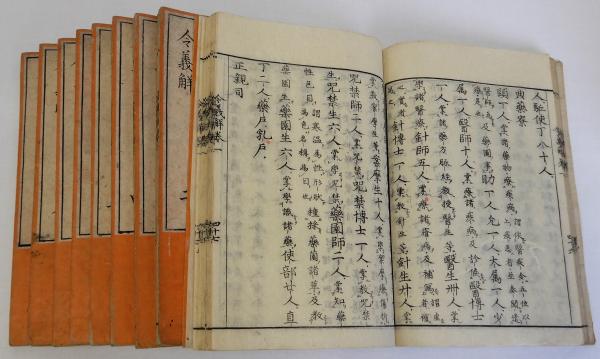 人駈使丁八十人
典藥寮
頭一人掌諸藥物療疾病
及藥園事助一人允一人大属一人少
属一人醫師十人掌療諸疾病及診候醫博士
一人掌諸藥方脉經教授醫生等醫生卌人掌
學諸醫療針師五人掌療諸瘡病及補寫
針博士一人掌教針生等針生廿人掌
生十人掌學案摩療傷折
咒禁師二人掌咒禁咒禁博士一人掌教咒禁
生咒禁生六人掌學咒禁藥園師二人掌知藥
性色目謂寒温為性形狀為色名稱為目也種採藥園諸草及教
藥園生藥園生六人掌學識諸藥使部廿人直
丁二人藥戸乳戸
正親司
令義解卷一
四十七
令義解
二